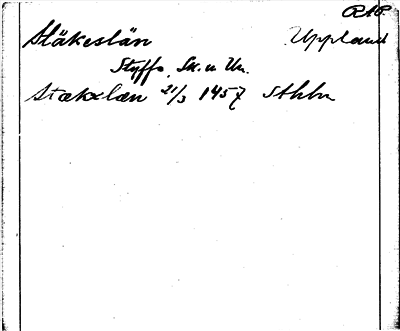 RAP.
Stäkeslän Uppland
Styffe, Sk. u Un.
Stækxlæn 21/3 1457 Sthlm